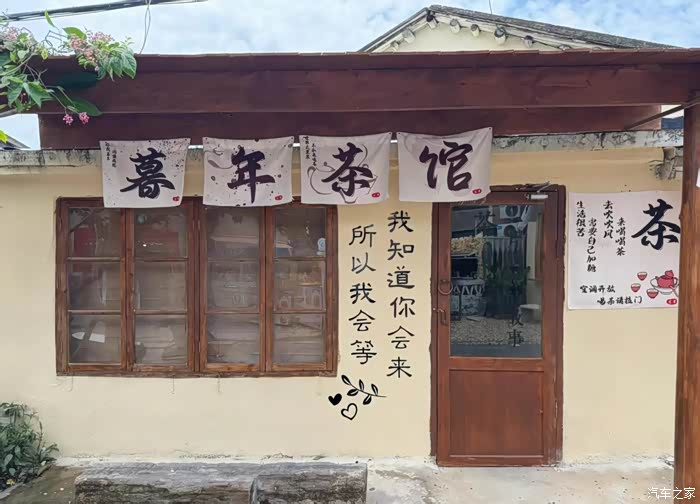 暮年茶馆
我知道你会来
所以我会等
茶
来喝喝茶
去吹吹风
需要自己加糖
生活很苦
空调开放
喝茶请拉门
故事
汽车之家